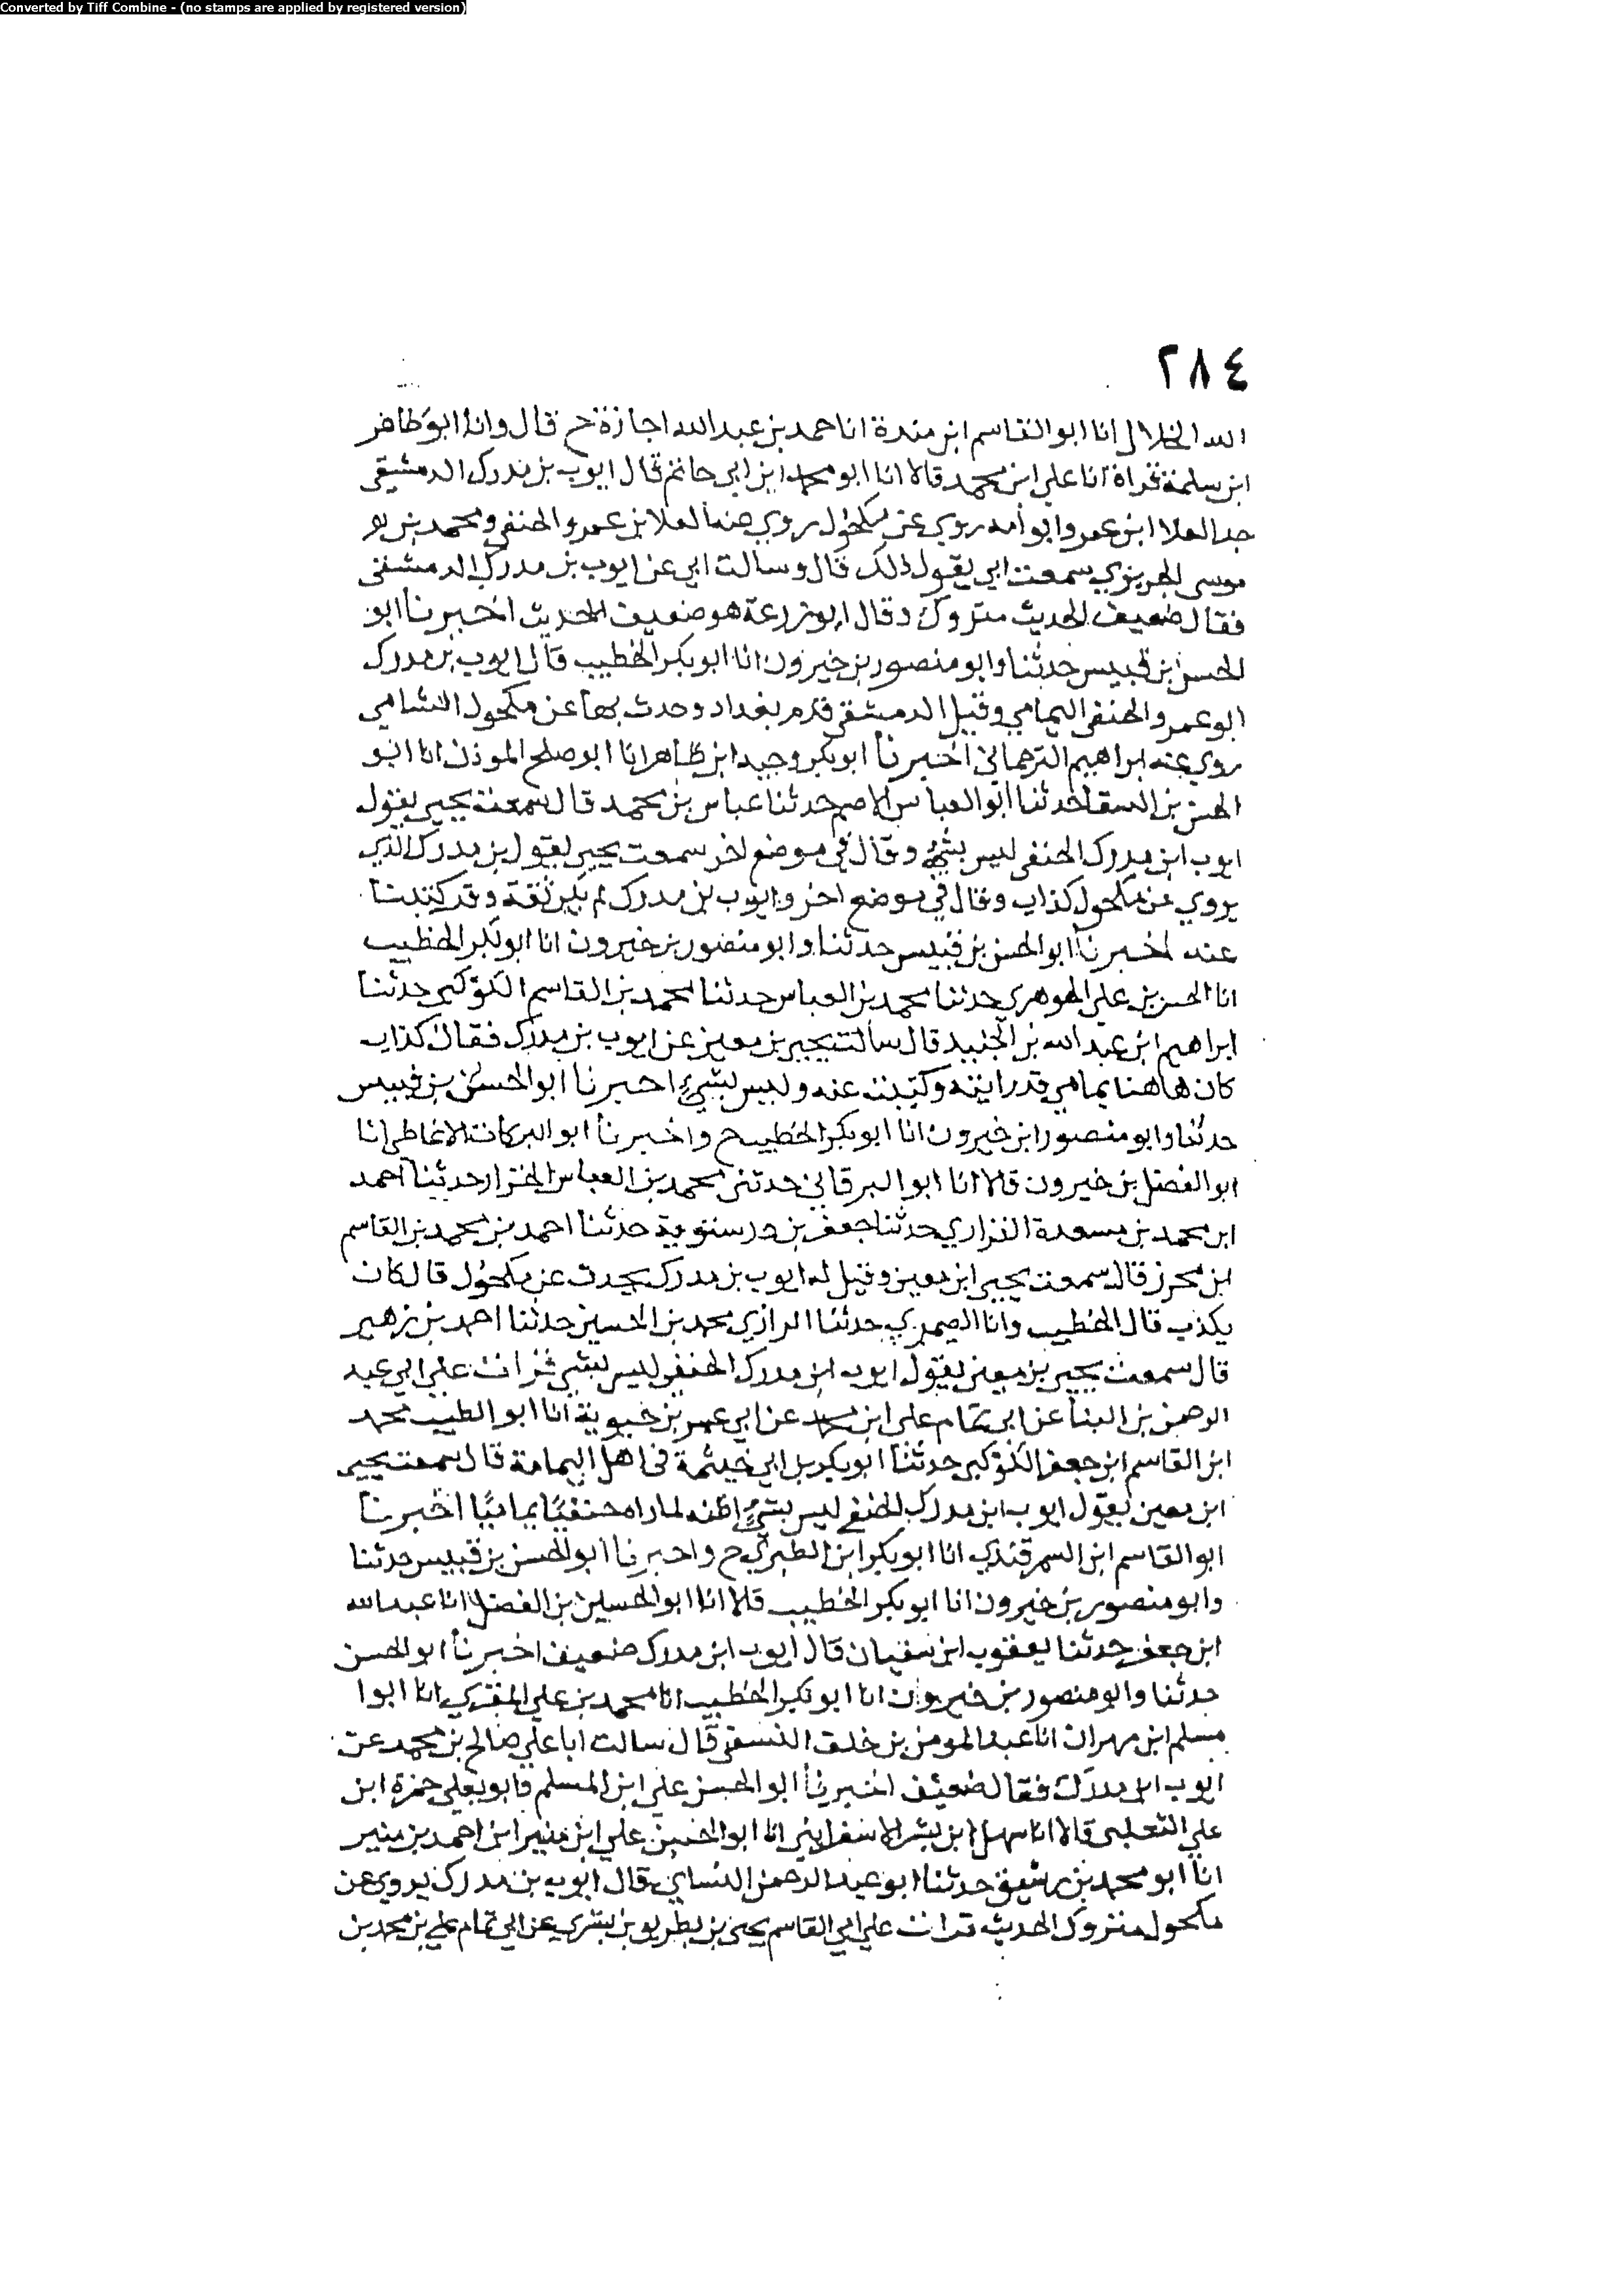 Converted by Tiff Combine - (no stamps are applied by registered version)
٢٨٤
الله الخلال انا ابو القاسم ابن مندة انا حمد بن عبد الله اجازة ح قال وانا ابو طاهر
ابن سلمة قراة انا علي ابن محمد قالا انا ابو محمد ابن ابي حاتم قال ايوب بن مدرك الدمشقي
جد العلا ابن عمرو ابو امه روي عن مكحول روي عنه العلا بن عمرو الحنفي ومحمد بن
موسى الجريزي سمعت ابي يقول ذلك قال وسالت ابي عن ايوب بن مدرك الدمشقي
فقال ضعيف الحديث متروك وقال ابو زرعة هو ضعيف الحديث اخبرنا ابو
الحسن بن قبيس حدثنا وابو منصور بن خيرون انا ابو بكر الخطيب قال ايوب بن مدرك
ابو عمرو الحنفي اليمامي وقيل الدمشقي قدم بغداد وحدث بها عن مكحول الشامي
روي عنه ابراهيم الترجماني اخبرنا ابو بكر وجيه ابن طاهر انا ابو صلح الموذن انا ابو
الحسن بن السقا حدثنا ابو العباس الاصم حدثنا عباس بن محمد قال سمعت يحيى يقول
ايوب ابن مدرك الحنفي ليس بشيء وقال في موضع اخر سمعت يحيى يقول بن مدرك الذي
يروي عن مكحول كذاب وقال في موضع اخر وايوب بن مدرك لم يكن ثقة وقد كتبنا
عنه اخبرنا ابو الحسن بن قبيس حدثنا وابو منصور بن خيرون انا ابو بكر الخطيب
انا الحسن بن علي الجوهري حدثنا محمد بن العباس حدثنا محمد بن القاسم الكوكبي حدثنا
ابراهيم ابن عبد الله بن الجنيد قال سالت يحيى بن معين عن ايوب بن مدرك فقال كذاب
كان هاهنا يمامي قد رايته وكتبت عنه وليس بشيء اخبرنا ابو الحسن بن قبيس
حدثنا وابو منصور ابن خيرون انا ابو بكر الخطيب ح واخبرنا ابو البركات الانماطي انا
ابو الفضل بن خيرون قالا انا ابو البرقاني حدثني محمد بن العباس الخزاز حدثنا احمد
ابن محمد بن مسعدة الفزاري حدثنا جعفر بن درستوية حدثنا احمد بن محمد بن القاسم
ابن محرز قال سمعت يحيى ابن معين وقيل له ايوب بن مدرك يحدث عن مكحول قال كان
يكذب قال الخطيب وانا الصيمري حدثنا الرازي محمد بن الحسين حدثنا احمد بن زهير
قال سمعت يحيى بن معين يقول ايوب ابن مدرك الحنفي ليس بشي قرات علي ابي عبد
الرحمن بن البنا عن ابي تمام علي ابن محمد عن ابي عمر بن حيوية انا ابو الطيب محمد
ابن القاسم ابن جعفر الكوكبي حدثنا ابو بكر بن ابي خيثمة في اهل اليمامة قال سمعت يحيى
ابن معين يقول ايوب ابن مدرك الحنفي ليس بشيء اظنه لما راه حنفيًا يماميًا اخبرنا
ابو القاسم ابن السمرقندي انا ابو بكر ابن الطبري ح واخبرنا ابو الحسن بن قبيس حدثنا
وابو منصور بن خيرون انا ابو بكر الخطيب قلا انا ابو الحسين بن الفضل انا عبد الله
ابن جعفر حدثنا يعقوب ابن سفيان قال ايوب ابن مدرك ضعيف اخبرنا ابو الحسن
حدثنا وابو منصور بن خيرون انا ابو بكر الخطيب انا محمد بن علي المقري انا ابوا
مسلم ابن مهران انا عبد المومن بن خلف النسفي قال سالت ابا علي صالح بن محمد عن
ايوب ابن مدرك فقال ضعيف اخبرنا ابو الحسن علي ابن المسلم وابو يعلي حمزة ابن
علي الثعلبي قالا انا سهل ابن بشر الاسفرايني انا ابو الحسين علي ابن منير ابن احمد بن منير
انا ابو محمد بن رشيق حدثنا ابو عبد الرحمن النساي قال ايوب بن مدرك يروي عن
مكحول متروك الحديث قرات علي ابي القاسم يحيى بن بطريق بن بشري عن ابي تمام علي بن محمد بن